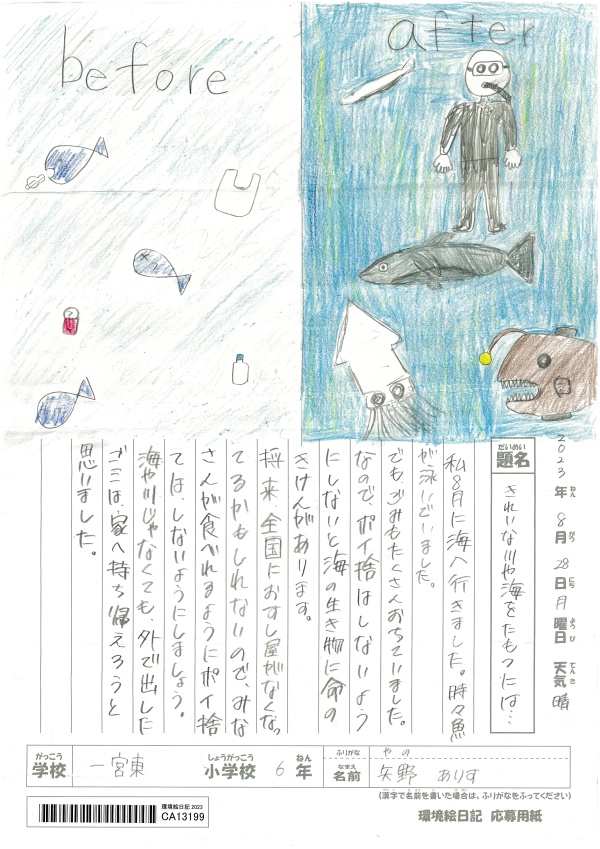 before
after
2023年 8月 28日 月曜日 天気 晴
ねん がつ にち ようび てんき
だいめい
題名 きれいな川や海をたもつには…
私8月に海へ行きました。時々魚
が泳いでいました。
でもごみもたくさんおちていました。
なので、ポイ捨はしないよう
にしないと海の生き物に命の
きけんがあります。
将来、全国におすし屋がなくなっ
てるかもしれないので、みな
さんが食べれるようにポイ捨
ては、しないようにしましょう。
海や川じゃなくても、外で出した
ゴミは、家へ持ち帰えろうと
思いました。
がっこう しょうがっこう ねん
学校 一宮東 小学校 6年
ふりがな やの
なまえ
名前 矢野 ありす
(漢字で名前を書いた場合は、ふりがなをふってください)
環境絵日記 2023
CA13199
環境絵日記 応募用紙